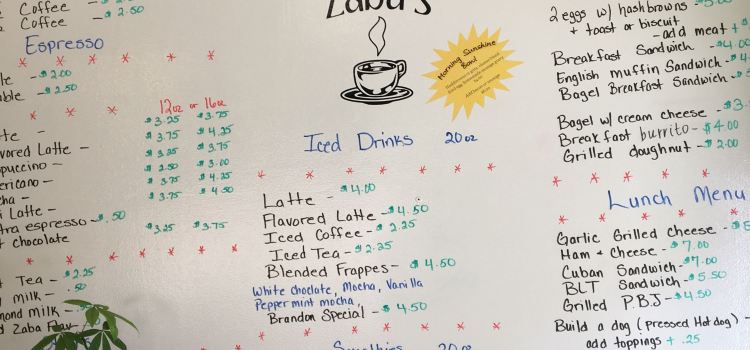 Coffee
Coffee - $2.50
Espresso
- $2.00
- $2.50
12oz or 16oz
- $3.25 $3.75
Latte - $3.75 $4.25
- $3.25 $3.75
- $2.50 $3.00
- $3.75 $4.25
- $3.75 $4.50
Latte -
espresso - $.50
chocolate $3.25 $3.75
Tea - $2.25
milk - .50
milk -
Zaba
Zaba's
Morning Sunshine
Bowl
Iced Drinks 20oz
Latte - $4.00
Flavored Latte - $4.50
Iced Coffee - $2.25
Iced Tea - $2.25
Blended Frappes - $4.50
White choclate, Mocha, Vanilla
Peppermint mocha,
Brandon Special - $4.50
20oz
2 eggs w/ hashbrowns -
+ toast or biscuit
- add meat +
Breakfast Sandwich - $4.00
English muffin Sandwich - $4.
Bagel Breakfast Sandwich -
Bagel w/ cream cheese - $3.
Breakfast burrito - $4.00
Grilled doughnut - $2.00
Lunch Menu
Garlic Grilled Cheese - $5
Ham + Cheese - $7.00
Cuban Sandwich - $7.00
BLT Sandwich - $5.50
Grilled P.B.J - $4.50
Build a dog (Pressed Hot dog) -
add toppings + .25